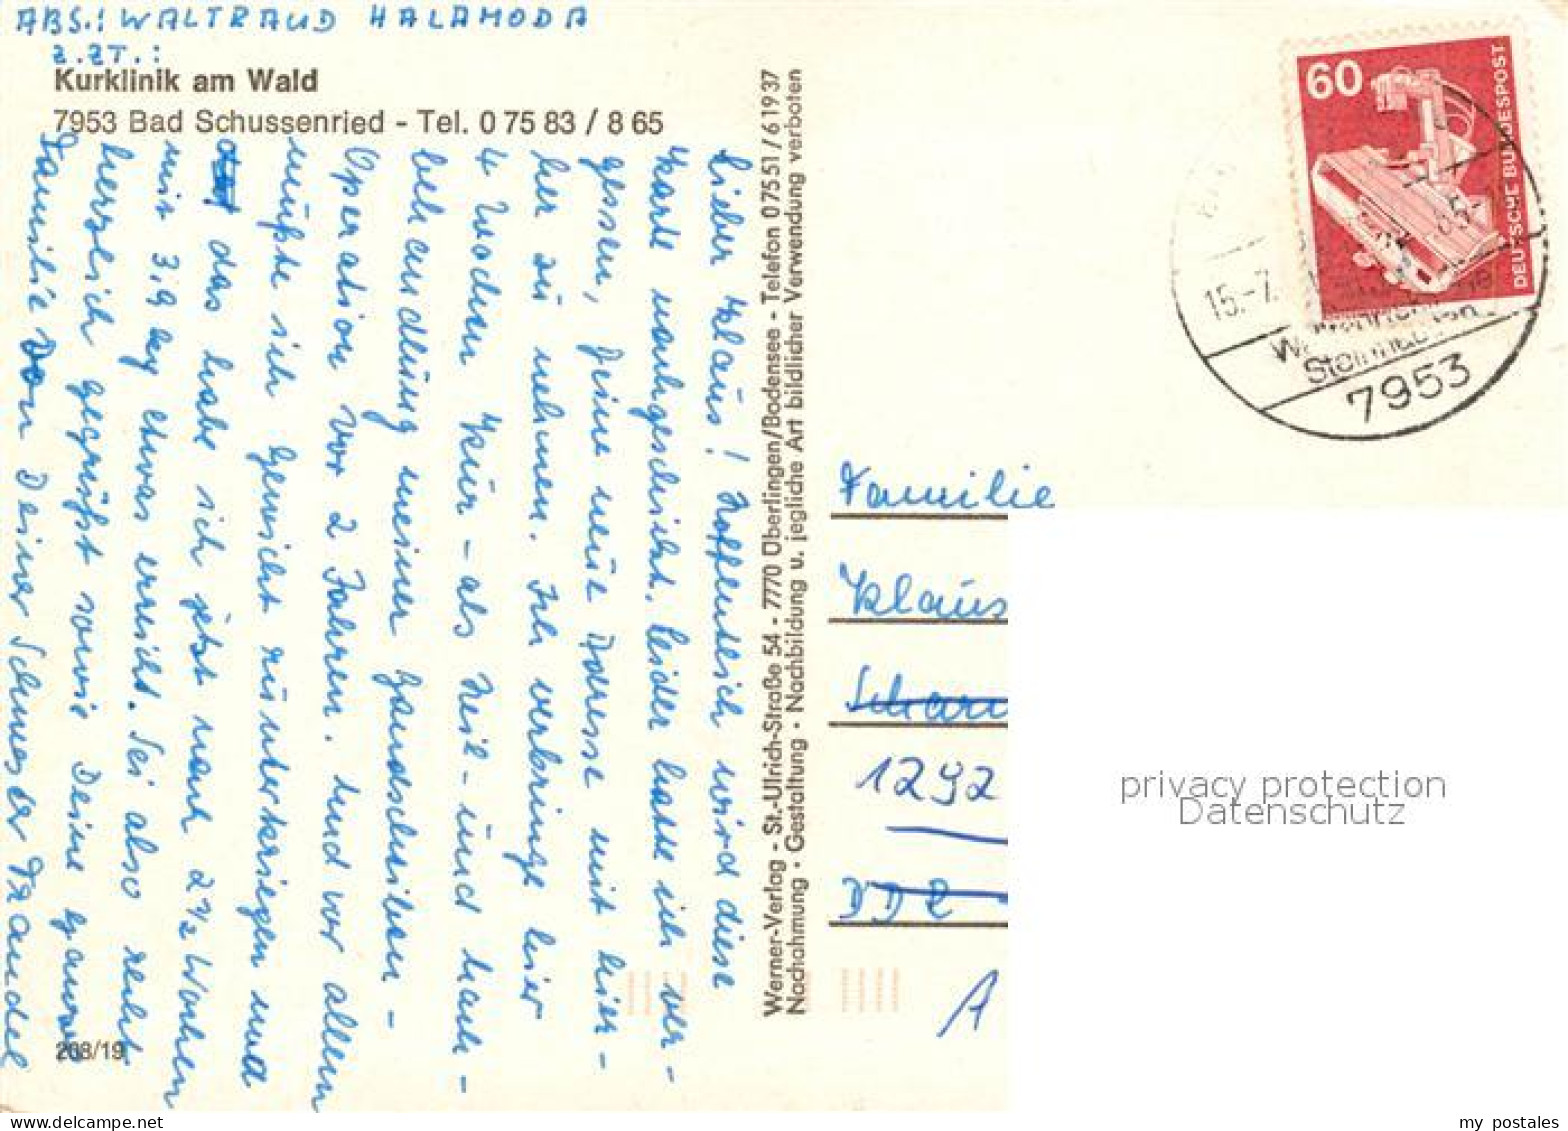 ABS.: WALTRAUD HALAMODA
Z.ZT.:
Kurklinik am Wald
7953 Bad Schussenried - Tel. 0 75 83 / 8 65
Lieber Klaus! Hoffentlich wird diese
Karte nachgeschickt. Leider hatte ich ver-
gessen, Deine neue Adresse mit hier-
her zu nehmen. Ich verbringe hier
4 Wochen Kur - als Heil- und Nach-
behandlung meiner Bandscheiben-
Operation vor 2 Jahren. Und vor allem
mußte ich Gewicht runterkriegen und
das habe ich jetzt nach 2 1/2 Wochen
mit 3,9 kg etwas erreicht. Sei also recht
herzlich gegrüßt sowie Deine ganze
Familie von Deiner Schwester Traudel
268/19
Werner-Verlag - St.-Ulrich-Straße 54 - 7770 Überlingen/Bodensee - Telefon 07551/61937
Nachahmung • Gestaltung • Nachbildung u. jegliche Art bildlicher Verwendung verboten
60
DEUTSCHE BUNDESPOST
15.-7.
7953
Familie
Klaus
1292
DDR
A
privacy protection
Datenschutz
my postales